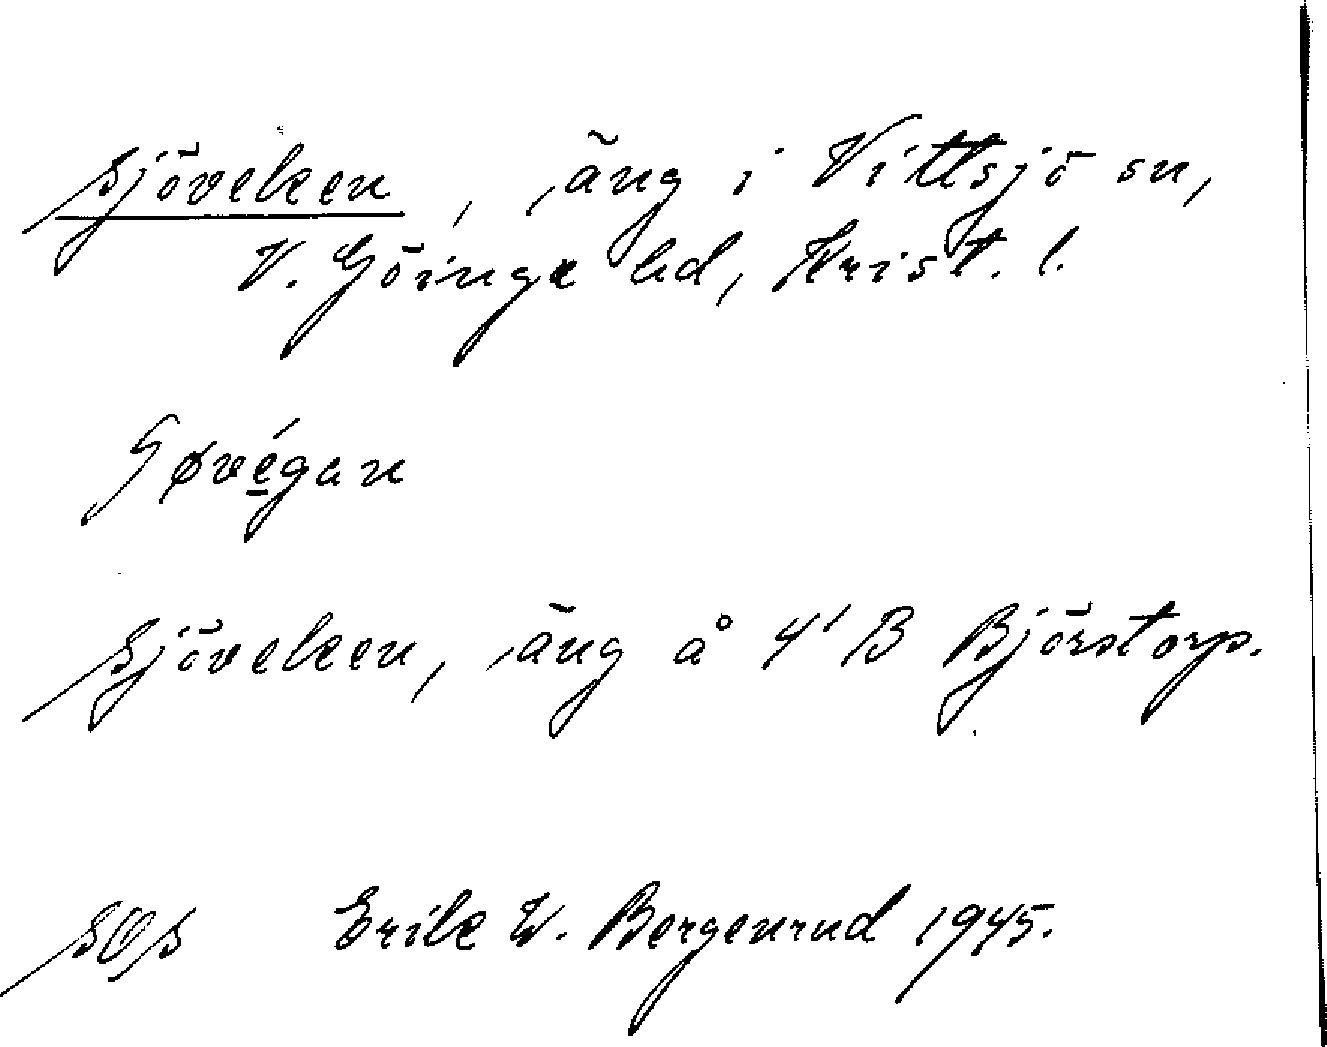 Sjöveken, äng i Vittsjö sn,
V. Göinge hd, Krist. l.
ʃøvégan
Sjöveken, äng å 4¹ B Björstorp.
SOS Erik W. Bergenrud 1945.